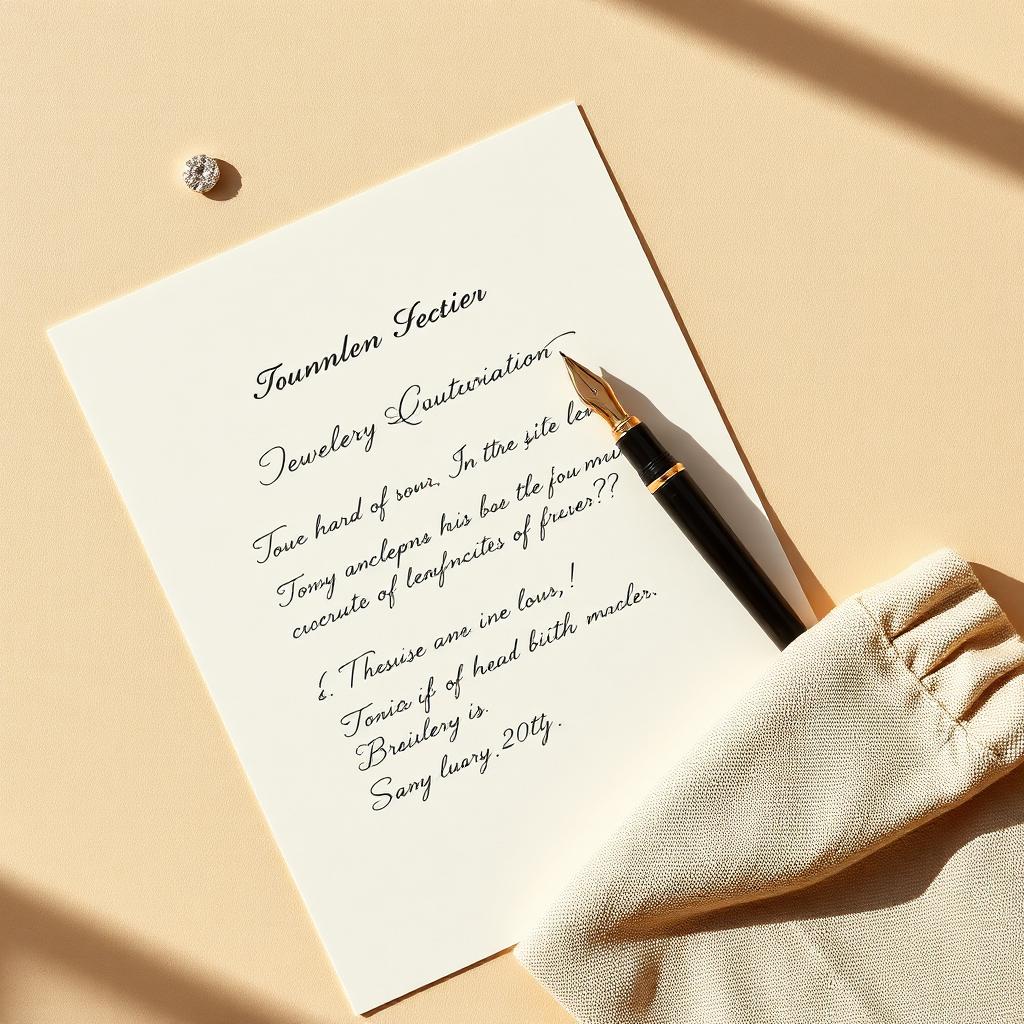 Tounnlen Sectier
Jewelery Coutusiation
Toue hard of sour, In ttre site
Tomy anclepns his bos tle fou
of freser??
6. Thesuise ane ine lous,!
Tonica if of head biith macler.
Breiulery is.
Samy luary. 20tty.